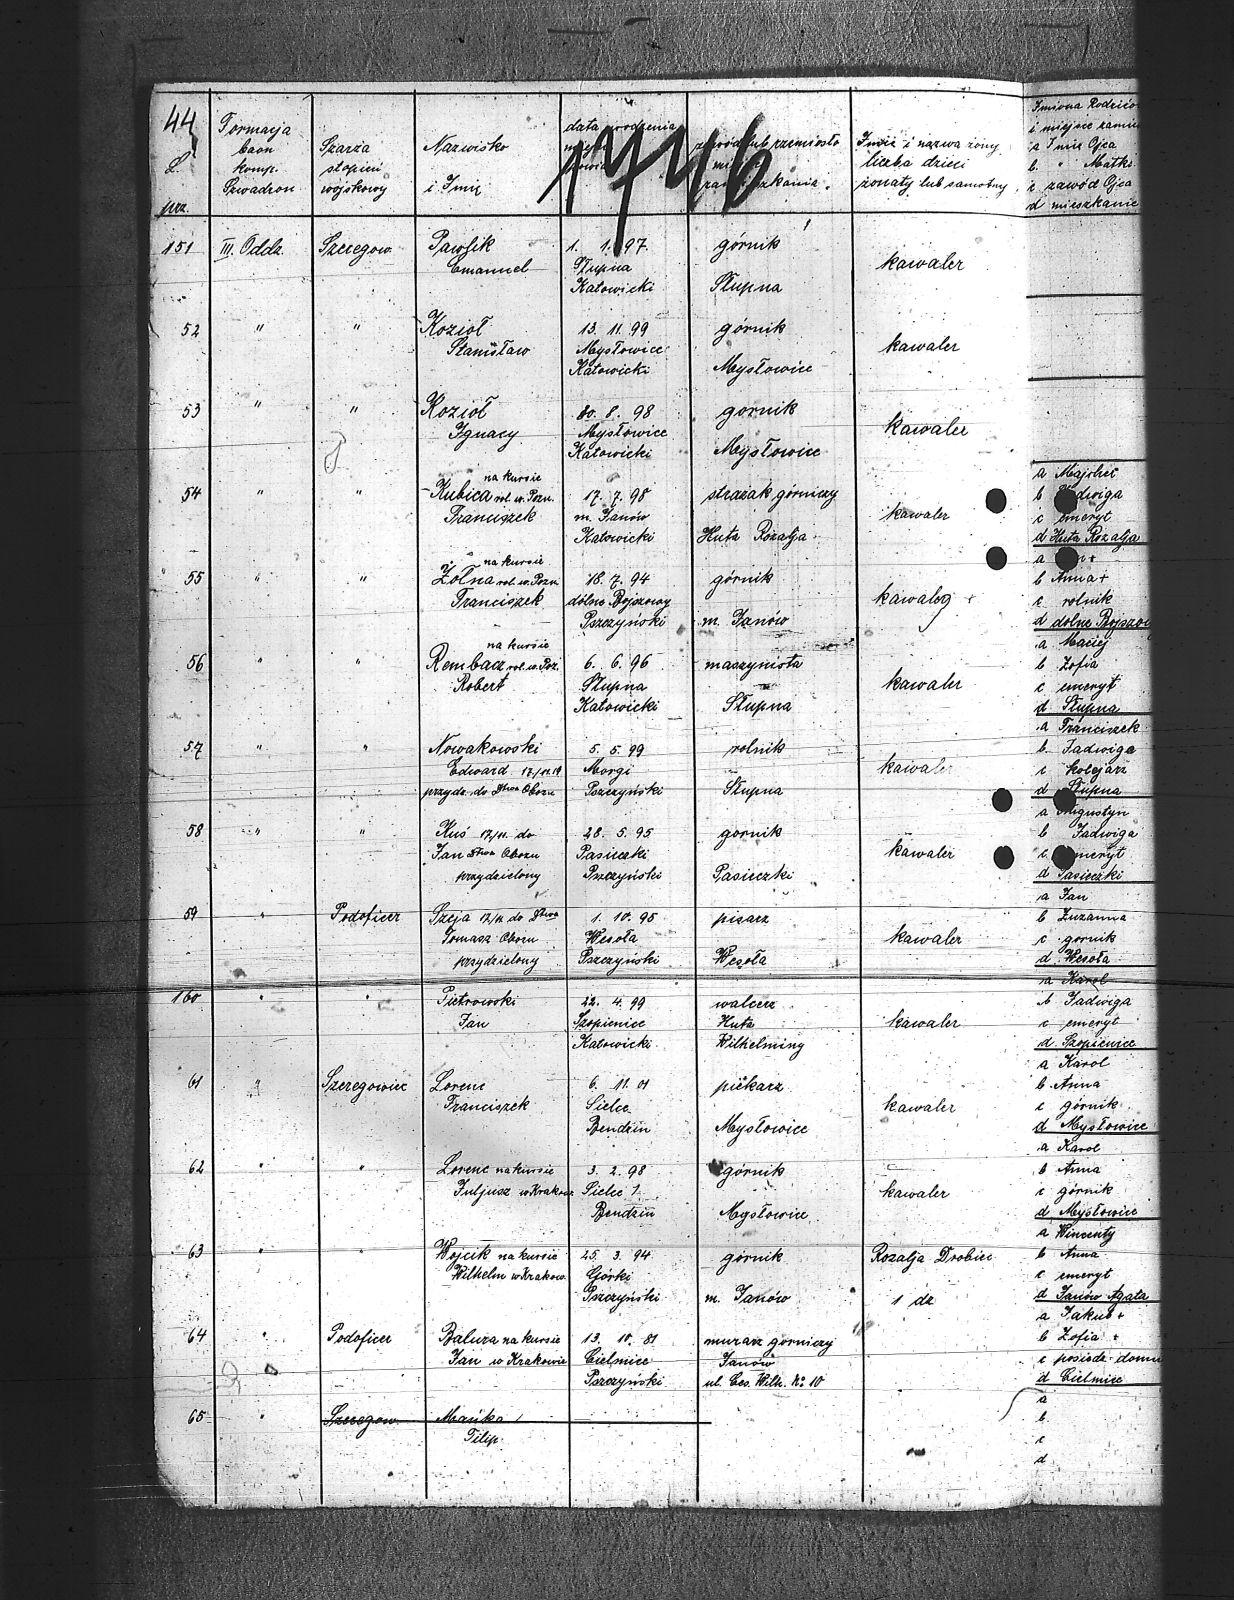 44
Formacja
baon
komp.
Szwadron
L.
prz.
Szarża
stopień
wojskowy
Nazwisko
i Imię
data urodzenia
1746
zawód lub rzemiosło
zamieszkania
Imię i nazwa żony
liczba dzieci
żonaty lub samotny
Imiona Rodziców
i miejsce zamie
a Imię Ojca
b. " Matki
c zawód Ojca
d mieszkanie
151 III. Oddz. Szeregow. Pawlik 1. 1. 97 górnik
Emanuel Słupna kawaler
Katowicki Słupna
52 " " Kozioł 13. 11. 99 górnik
Stanisław Mysłowice kawaler
Katowicki Mysłowice
53 " " Kozioł 30. 8. 98 gornik
Ignacy Mysłowice kawaler
Katowicki Mysłowice
na kursie a Majcher
54 " " Kubica rol. w. Pozn. 17. 7. 98 strażak górniczy b Jadwiga
Franciszek m. Janów kawaler c emeryt
Katowicki Huta Rozalja d Huta Rozalja
na kursie a
55 " " Żołna rol. w. Pozn. 18. 7. 94 górnik b Anna +
Franciszek dólne Bojszowy kawaler c rolnik
Pszczyński m. Janów d dolne Bojszow
na kursie a Maciej
56 " " Rembacz rol. w. Poz. 6. 6. 96 maszynista b Zofia
Robert Słupna kawaler c emeryt
Katowicki Słupna d Słupna
a Franciszek
57 " " Nowakowski 5. 5. 99 rolnik b. Jadwiga
Edward 17/11.19 Morgi kawaler c kolejarz
przydz. do Dtwa Obozu Pszczyński Słupna d Słupna
a Augustyn
58 " " Kuś 17/11. do 28. 5. 95 gornik b Jadwiga
Jan Dtwa Obozu Pasieczki kawaler c emeryt
przydzielony Pszczyński Pasieczki d Pasieczki
a Jan
59 " Podoficer Szeja 17/11 do Dtwa 1. 10. 95 pisarz b Zuzanna
Tomasz Obozu Wesoła kawaler c gornik
przydzielony Pszczyński Wesoła d Wesoła
a Karol
160 " " Piotrowski 22. 4. 99 walcerz b Jadwiga
Jan Szopienice Huta kawaler c emeryt
Katowicki Wilhelminy d Szopienice
a Karol
61 " Szeregowiec Lorenc 6. 11. 01 piekarz b Anna
Franciszek Sielce kawaler c górnik
Bendzin Mysłowice d Mysłowice
a Karol
62 " " Lorenc na kursie 3. 2. 98 górnik b Anna
Juljusz w Krakow. Sielce kawaler c górnik
Bendzin Mysłowice d Mysłowice
a Wincenty
63 " " Wojcik na kursie 25. 3. 94 górnik Rozalja Drobiec b Anna
Wilhelm w Krakow. Górki c emeryt
Pszczyński m. Janów 1 dz d Janów Agata
a Jakub +
64 " Podoficer Baluza na kursie 13. 10. 81 murarz górniczy b Zofia +
Jan w Krakowie Cielmice Janów c posiada domu
Pszczyński ul. Ces. Wilh. No 10 d Cielmice
a
65 " Szeregow. Mańka b
Filip c
d